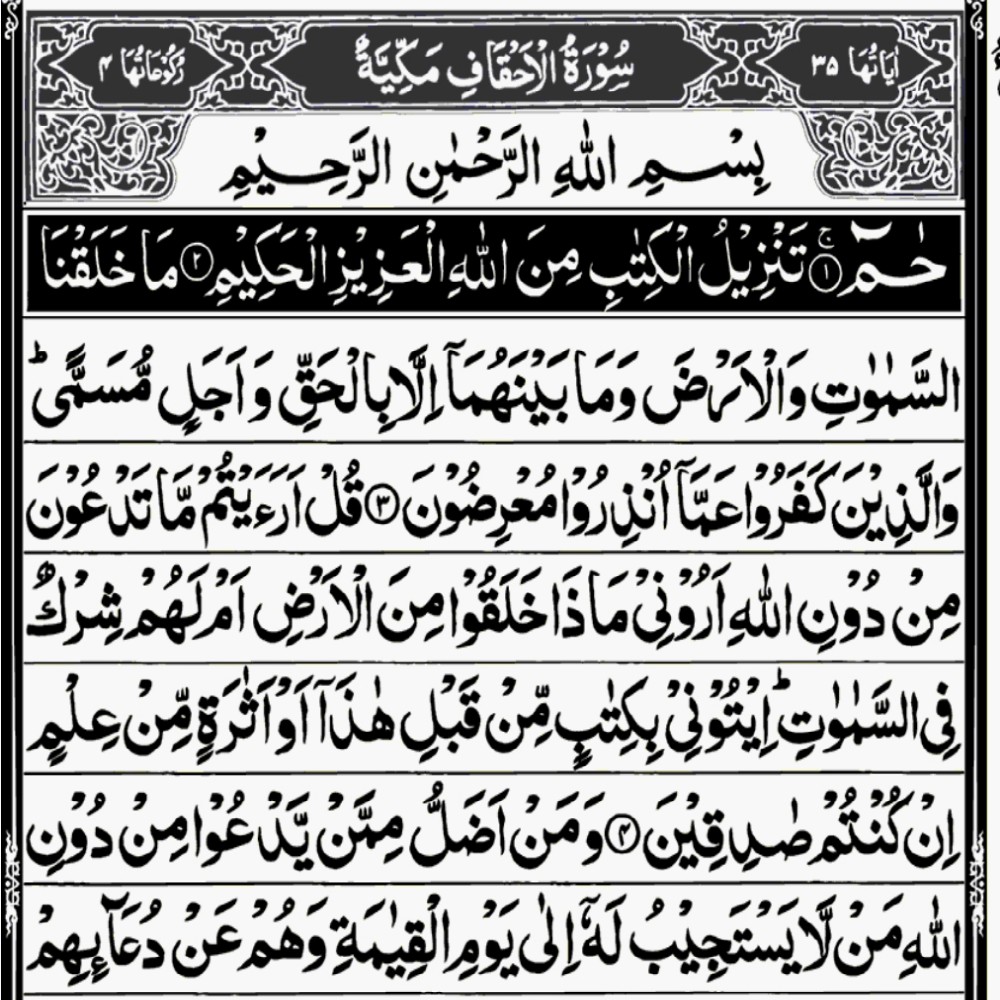 اٰیَاتُهَا ۳۵ سُوْرَةُ الْاَحْقَافِ مَكِّیَّةٌ رُكُوْعَاتُهَا ۴
بِسْمِ اللّٰهِ الرَّحْمٰنِ الرَّحِیْمِ
حٰمٓ ۚ﴿۱﴾ تَنْزِیْلُ الْكِتٰبِ مِنَ اللّٰهِ الْعَزِیْزِ الْحَكِیْمِ ﴿۲﴾ مَا خَلَقْنَا
السَّمٰوٰتِ وَالْاَرْضَ وَمَا بَیْنَهُمَاۤ اِلَّا بِالْحَقِّ وَ اَجَلٍ مُّسَمًّی ؕ
وَالَّذِیْنَ كَفَرُوْا عَمَّاۤ اُنْذِرُوْا مُعْرِضُوْنَ ﴿۳﴾ قُلْ اَرَءَیْتُمْ مَّا تَدْعُوْنَ
مِنْ دُوْنِ اللّٰهِ اَرُوْنِیْ مَاذَا خَلَقُوْا مِنَ الْاَرْضِ اَمْ لَهُمْ شِرْكٌ
فِی السَّمٰوٰتِ ؕ اِیْتُوْنِیْ بِكِتٰبٍ مِّنْ قَبْلِ هٰذَاۤ اَوْ اَثٰرَةٍ مِّنْ عِلْمٍ
اِنْ كُنْتُمْ صٰدِقِیْنَ ﴿۴﴾ وَ مَنْ اَضَلُّ مِمَّنْ یَّدْعُوْا مِنْ دُوْنِ
اللّٰهِ مَنْ لَّا یَسْتَجِیْبُ لَهٗۤ اِلٰی یَوْمِ الْقِیٰمَةِ وَهُمْ عَنْ دُعَآىِٕهِمْ